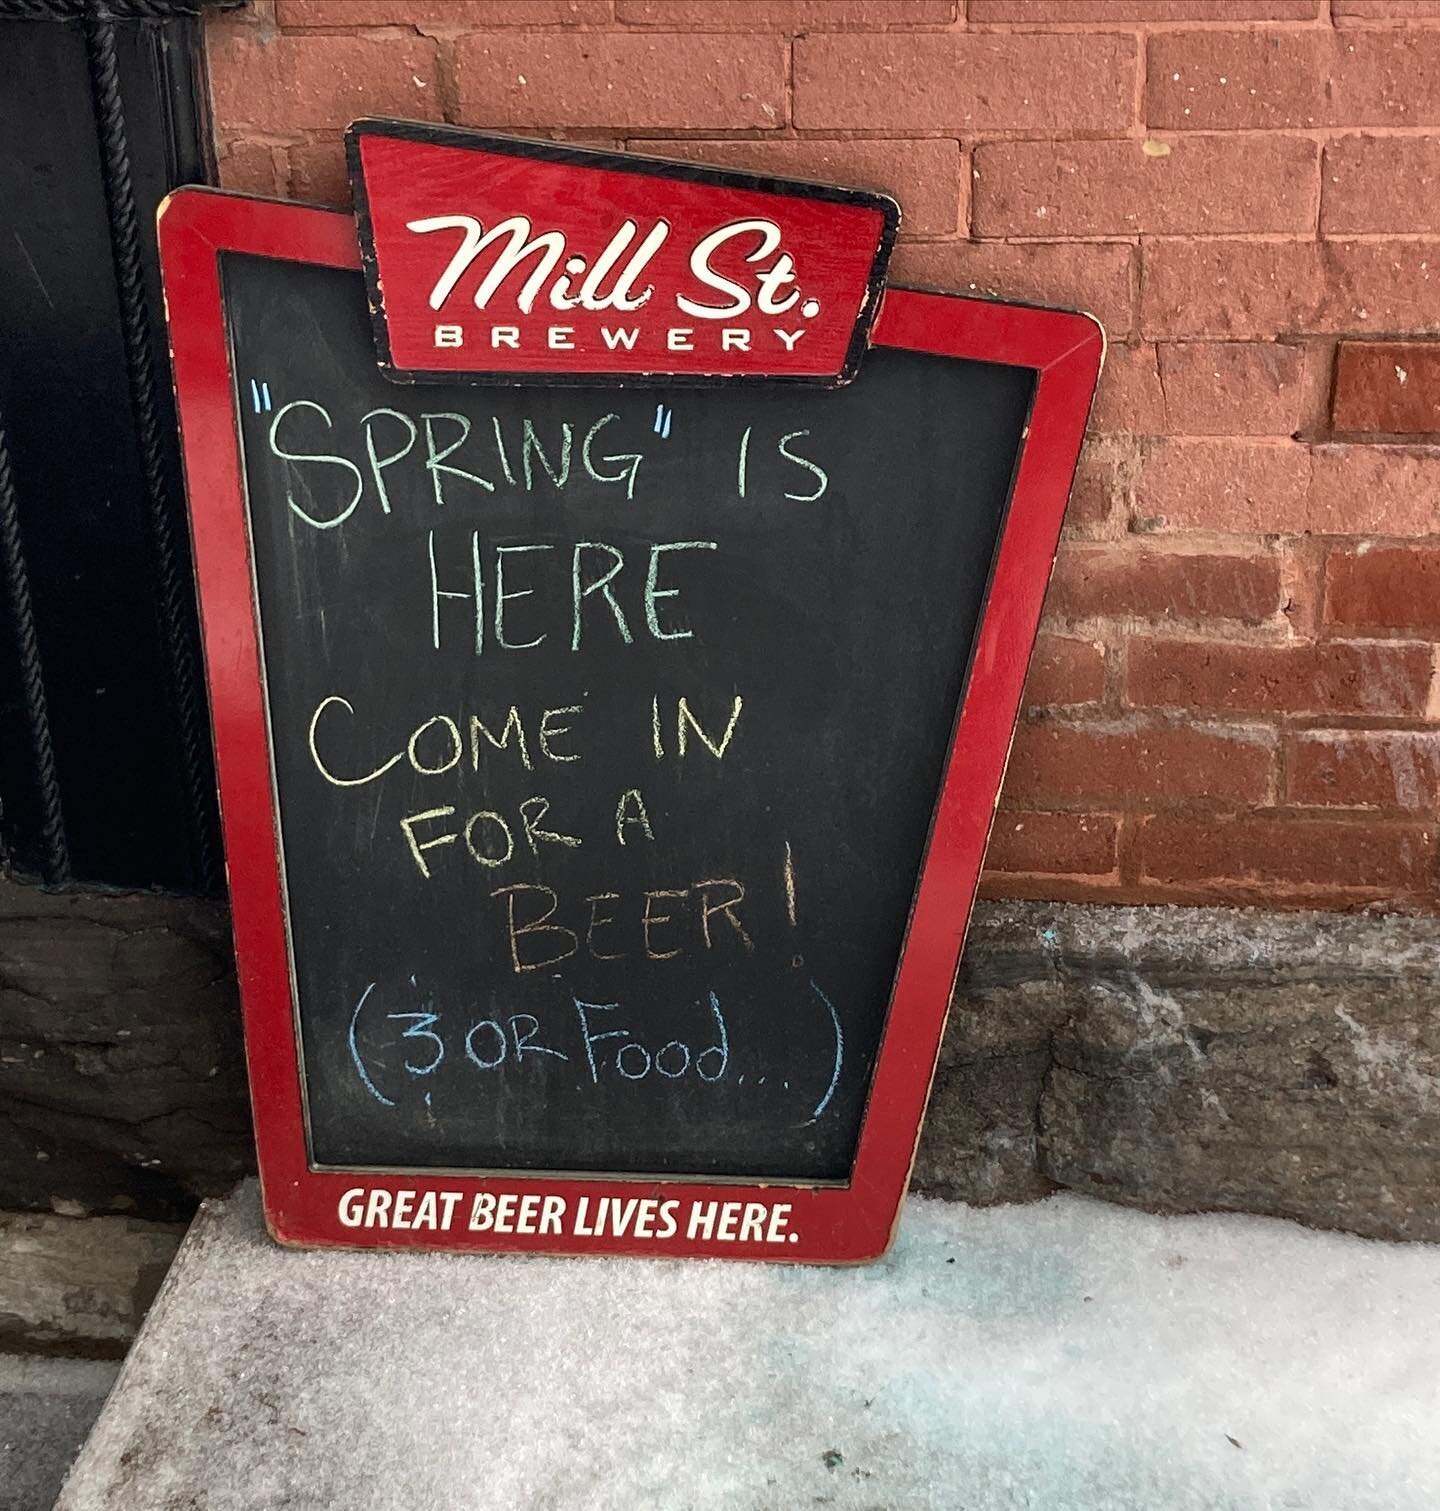 Mill St.
BREWERY
"SPRING" IS
HERE
COME IN
FOR A
BEER!
(3 OR Food...)
GREAT BEER LIVES HERE.